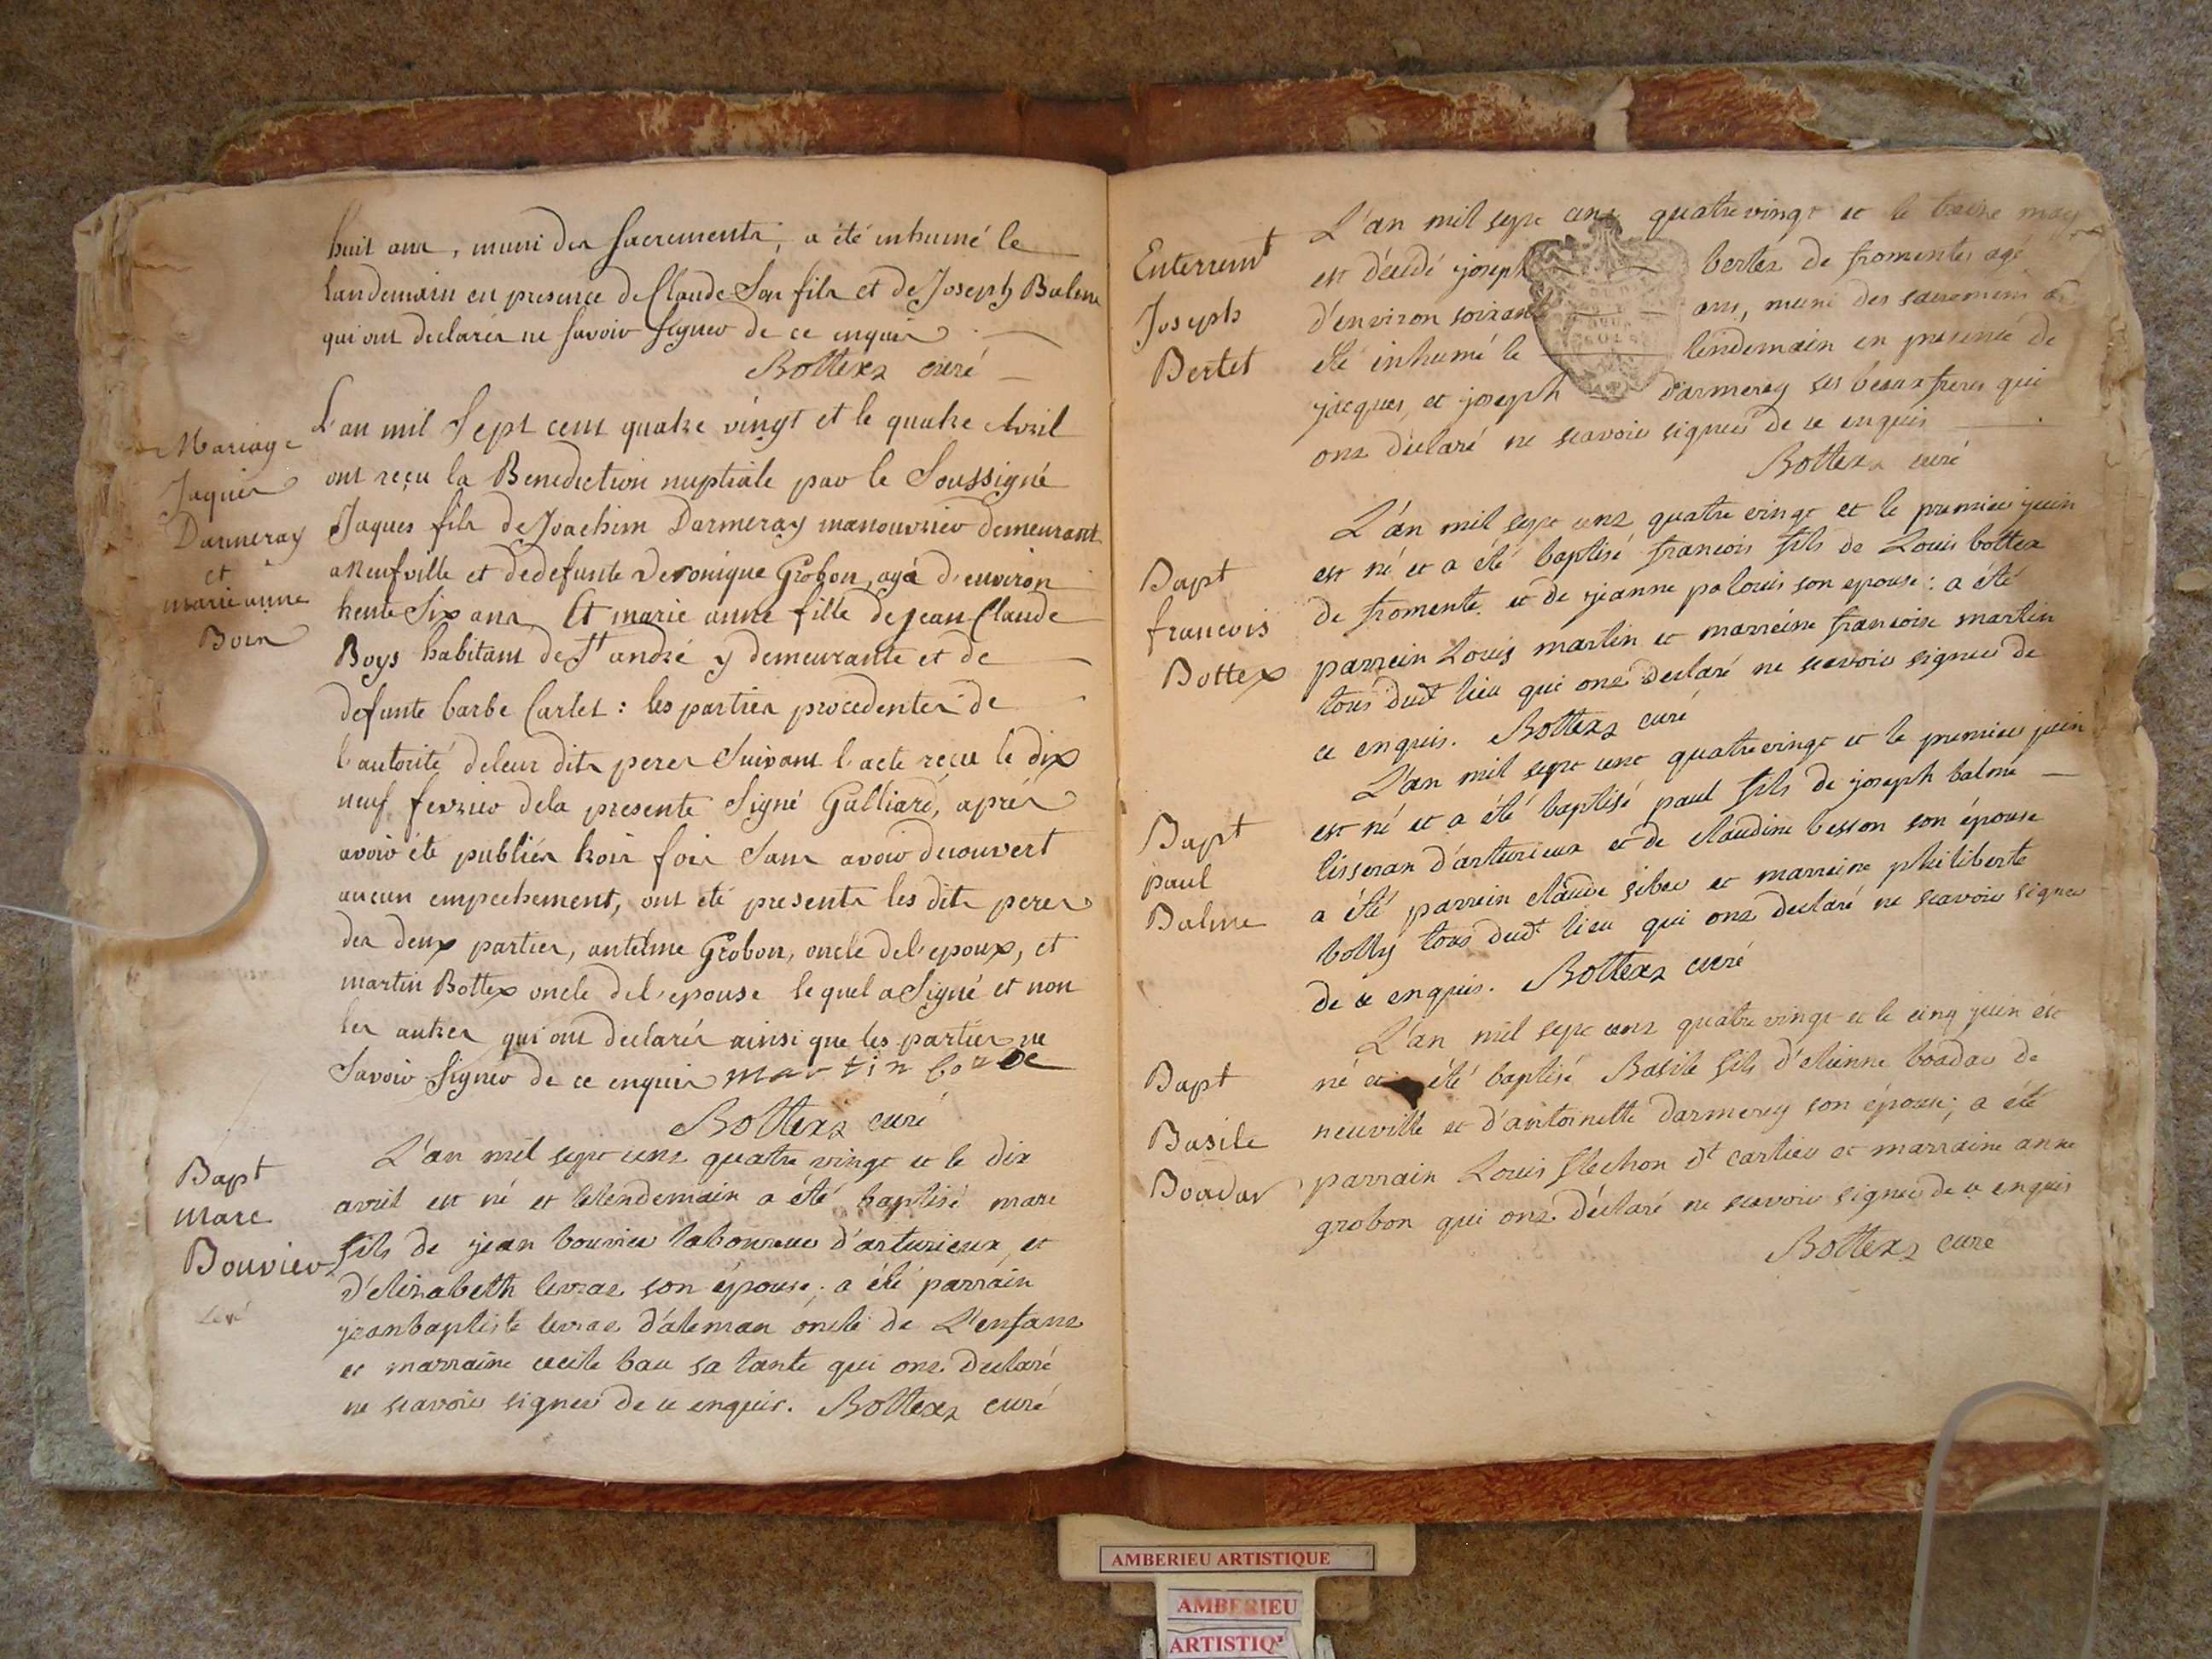 huit ans, muni des sacrements, a été inhumé le
landemain en presence de Claude Son fils et de Joseph Balme
qui ont declarés ne savoir signer de ce enquis
Bottex curé
Mariage
Jaques
Darmeray
et
marie anne
Bois
L'an mil Sept cent quatre vingt et le quatre Avril
ont reçu la Benediction nuptiale par le Soussigné
Jaques fils de Joachim Darmeray manouvrier demeurant
a Neufville et de defunte Veronique Grobon, agé d'environ
trente Six ans Et marie anne fille de jean Claude
Boys habitant de St andré y demeurante et de
defunte barbe Carlet : les parties procedentes de
l'autorité de leur dits peres Suivant l'acte reçu le dix
neuf fevrier de la presente Signé Galliard, aprés
avoir été publiés trois fois Sans avoir decouvert
aucun empechement, ont été presents les dits peres
des deux parties, antelme Grobon, oncle de l'epoux, et
martin Bottex oncle de l'epouse le quel a Signé et non
les autres qui ont declarés ainsi que les parties ne
Savoir Signer de ce enquis martin
Bottex curé
Bapt
Marc
Bouvier
L'an mil sept cent quatre vingt et le dix
avril est né et le lendemain a été baptisé marc
fils de jean bouvier laboureur d'arturieux et
d'elizabeth levrat son épouse ; a été parrain
jeanbaptiste levrat d'aleman oncle de L'enfant
et marraine cecile bau sa tante qui ont declaré
ne scavoir signer de ce enquis. Bottex curé
Enterremt
Joseph
Bertet
L'an mil sept cent quatrevingt et le treize may
est décédé joseph bertet de fromentes agé
d'environ soixante ans, muni des sacremens a
été inhumé le lendemain en presence de
jacques et joseph d'armerey ses beaux freres qui
ont déclaré ne scavoir signer de ce enquis
Bottex curé
Bapt
francois
Bottex
L'an mil sept cent quatre vingt et le premier juin
est né et a été baptisé francois fils de Louis bottex
de fromente et de jeanne palouis son epouse : a été
parrein Louis martin et marreine francoise martin
tous dudt lieu qui ont declaré ne scavoir signer de
ce enquis. Bottex curé
Bapt
paul
Balme
L'an mil sept cent quatrevingt et le premier juin
est né et a été baptisé paul fils de joseph balme
tisseran d'arturieux et de claudine besson son épouse
a été parrein claude siber et marreine philiberte
bolly tous dudt lieu qui ont declaré ne scavoir signer
de ce enquis. Bottex curé
Bapt
Basile
Boadar
L'an mil sept cent quatre vingt et le cinq juin est
né et été baptisé Basile fils d'etienne boadar de
neuville et d'antoinette darmerey son épouse ; a été
parrain Louis flechon dt cartier et marraine anne
grobon qui ont déclaré ne scavoir signer de ce enquis
Bottex curé
AMBERIEU ARTISTIQUE
AMBERIEU
ARTISTIQ